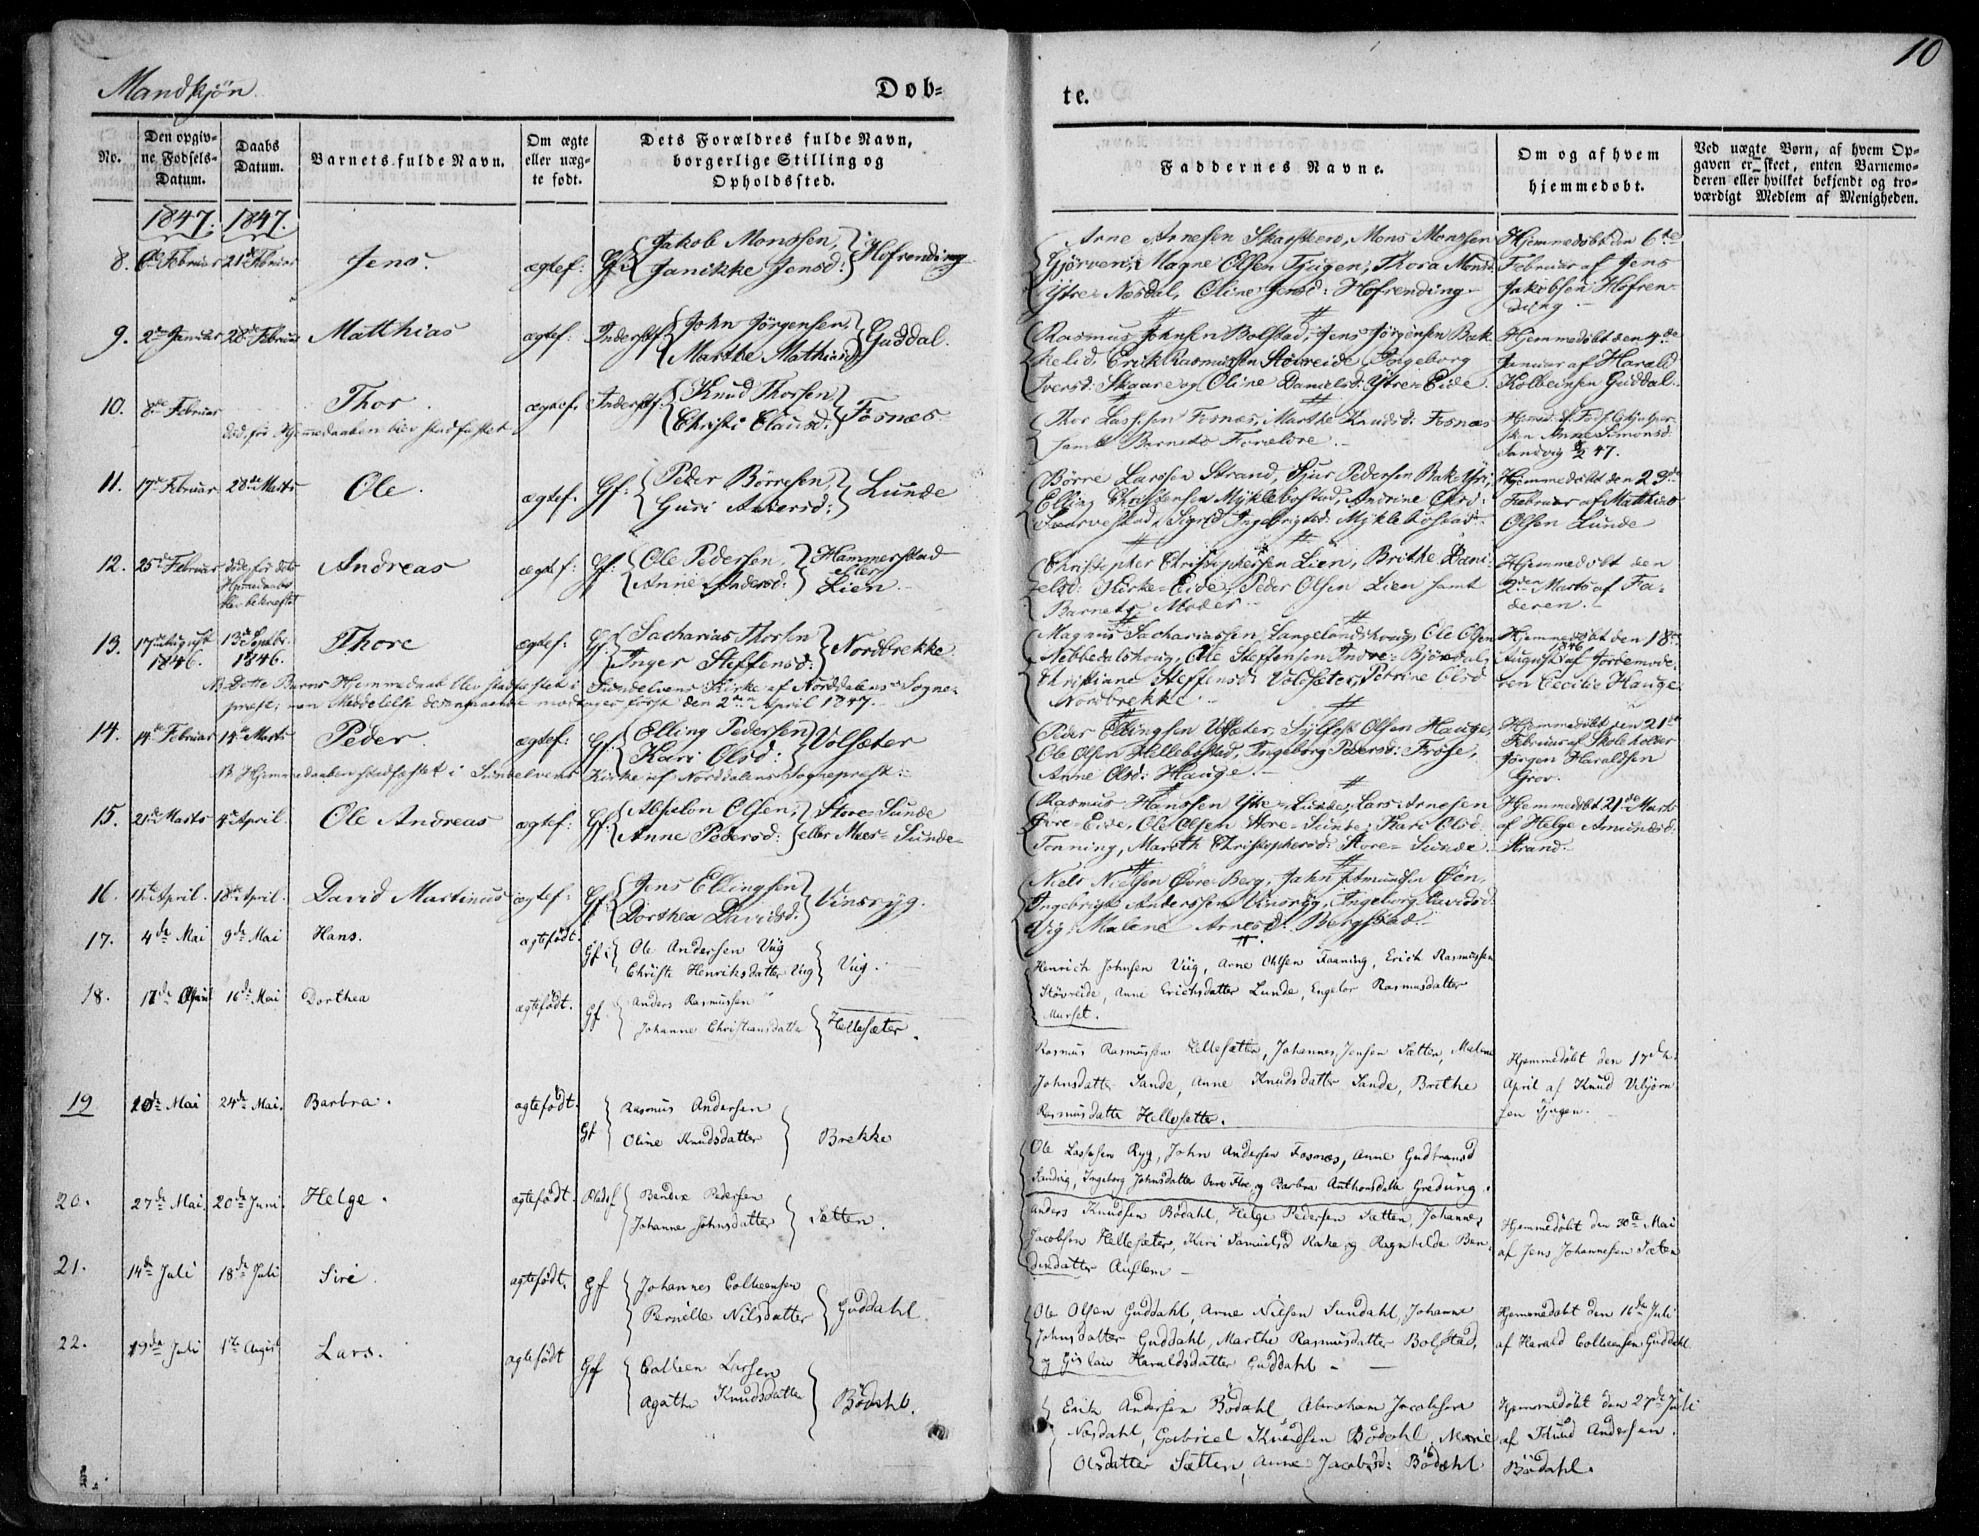 Mandkjön.
Døb-
te.
10
No.
Den opgiv-
ne Fødsels-
Datum.
Daabs
Datum.
Barnets fulde Navn.
Om ægte
eller uæg-
te født.
Dets Forældres fulde Navn,
borgerlige Stilling og
Opholdssted.
Faddernes Navne.
Om og af hvem
hjemmedøbt.
Ved uægte Børn, af hvem Op-
gaven er skeet, enten Barnemo-
deren eller hvilket bekjendt og tro-
værdigt Medlem af Menigheden.
1847. 1847.
8. 6te Februar 21de Februar Jens. ægtef: Gf: Jakob Monssen, Janikke Jensd: Hofrending
Arne Arnesen Skarsteen, Mons Monssen
Gjörven, Magne Olsen Tjugen, Thora Monsd:
Ytre-Næsdal, Oline Jensd: Hofrending
Hjemmedöbt den 6te
Februar af Jens
Jakobsen Hofren-
ding.
9. 2den Januar 28de Februar Matthias ægtef: Inderst John Jörgensen, Marthe Mathiasd: Guddal.
Rasmus Johnsen Bolstad, Jens Jörgensen Bak-
kelid, Erik Rasmussen Stövreide, Ingeborg
Iversd: Skaare og Oline Danielsd: Ytre-Eide.
Hjemmedöbt den 4de
Januar af Harald
Kolbeinsen Guddal.
10. 8de Februar Thor ægtef. Inderst Knud Thorsen, Christi Clausd: Fosnæs
död, för Hjemmedaaben blev stadfæstet.
Thor Lassesen Fosnæs, Marthe Knudsd: Fosnæs
samt Barnets Forældre.
Hjemd. af
Anne Simonsd.
Sandvig 47.
11. 17de Februar 28de Marts Ole. ægtef. Gf: Peder Börresen, Guri Andersd: Lunde
Börre Larssen Strand, Sjur Pedersen Bakke
Elling Christensen Myklebostad, Andrine Olsd:
Sigrid Ingebrigtsd: Myklebostad
Hjemmedöbt den 23de
Februar af Matthias
Olsen Lunde
12. 25de Februar döde för dets Andreas ægtef: Gf: Ole Pedersen, Anne Andersd: Hammerstad
Hjemmedaab
blev bekræftet
eller
Lien
Christopher Christophersen Lien, Brithe Dani-
elsd: Kirke-Eide, Peder Olsen Lien samt
Barnets Moder
Hjemmedöbt den
2den Marts af Fa-
deren.
13. 17de August 13de Septbr. Thore ægtef: Gf. Sacharias Thorsen Inger Steffensd: Nordbrekke
1846. 1846.
NB. Dette Barns Hjemmedaab blev stadfæstet i Sundelvens Kirke af Norddalens Sogne-
præst; men Meddelelse desangaaende modtoges först den 2den April 1847.
Magnus Sachariassen Langelandshoug, Ole Olsen
Nebbedalshoug, Ole Steffensen Indre-Björdal,
Christiane Steffensd: Volsæter, Perrine Olsd
Nordbrekke
Hjemmedöbt den 18de
August 1846 af Jordemode-
ren Cecilie Hauge
14. 14de Februar 14de Marts Peder. ægtef: Gf: Elling Pedersen Kari Olsd: Volsæter
NB. Hjemmedaaben stadfæstet i Sundelvens Kirke af Norddalens Sognepræst.
Peder Ellingsen Volsæter, Sylfest Olsen Hauge,
Ole Olsen Hellebostad, Ingeborg Pedersd: Fröse,
Anne Olsd: Hauge.
Hjemmedöbt den 21de
Februar af Skoleholder
Jörgen Haraldsen
Grov.
15. 21de Marts 4de April. Ole Andreas ægtef: Gf: Absalon Olsen, Anne Pedersd: Store-Sunde
eller Meer-Sunde
Rasmus Hanssen Ytre-Lunde, Lars Arnesen
Övre-Eide, Ole Olsen Store-Sunde, Kari Olsd
Tonning, Marith Christophersd: Store-Sunde.
Hjemmedöbt 21de Marts
af Helge Amundsd:
Strand.
16. 11te April. 18de April. David Martinus ægtef: Gf Jens Ellingsen Dorthea Davidsd: Vinsryg.
Niels Nielsen Övre-Berg, Jahn Amundsen Öön,
Ingebrigt Anderssen Vinsryg, Ingeborg Davidsd.
Vig, Malene Arnesd: Bergstad.
17. 4de Mai 9de Mai Hans. ægtefödt. Gf: Ole Andersen Viig
Christi Henriksdatter Viig Viig.
Henrich Johnsen Viig, Arne Olsen Faaning, Erich Rasmussen
Stövreide, Anne Erichsdatter Lunde, Engebor Rasmusdatter
Murset.
18. 17de April 16de Mai Dorthea ægtefödt. Gf. Anders Rasmussen
Johanne Christiansdatter Hellesæter.
Rasmus Rasmussen Hellesætter, Johannes Jensen Sætten, Malene
Johnsdatter Sande, Anne Knudsdatter Sande, Brithe
Rasmusdatte Hellesetter.
Hjemmedöbt den 17de
April af Knud Ubjörn-
sen Tjugen.
19 20de Mai 24de Mai. Barbra. ægtefödt. Gf Rasmus Andersen
Oline Knudsdatter Brekke
Ole Lassesen Ryg, John Andersen Fosnæs, Anne Gudbransd
Sandvig, Ingeborg Johnsdatter Övre Floe, og Barbra Anthonsdatte Gredung.
20. 27de Mai. 20de Juni. Helge. ægtefödt. Pladsf Bendix Pedersen
Johanne Johnsdatter Sætten.
Anders Knudsen Bödahl, Helge Pedersen Sætten, Johannes
Jacobsen Hellesæter, Kari Samuelsd Rake og Ragnhilde Ben-
dixdatter Auflem
Hjemmedöbt den 30te Mai
af Jens Johannesen Sæten
21. 14de Juli 18de Juli Siri. ægtefödt. Gf Johannes Colbeensen
Pernille Nilsdatter Guddahl.
Ole Olsen Guddahl, Arne Nilsen Sundahl, Johanne
Johnsdatter Guddahl, Marthe Rasmusdatter Bolstad,
og Gislau Haraldsdatter Guddahl
Hjemmedöbt den 16de Juli
af Harald Colbeensen Guddahl
22. 19de Juli 1ste August Lars. ægtefödt Gf Colbeen Larsen
Agathe Knudsdatter Bödahl.
Erik Andersen Bödahl, Abraham Jacobsen
Næsdahl, Gabriel Knudsen Bödahl, Marie
Olsdatter Sætten, Anne Jacobsd: Bödahl
Hjemmedöbt den 27de Juli
af Knud Andersen
Bödahl.